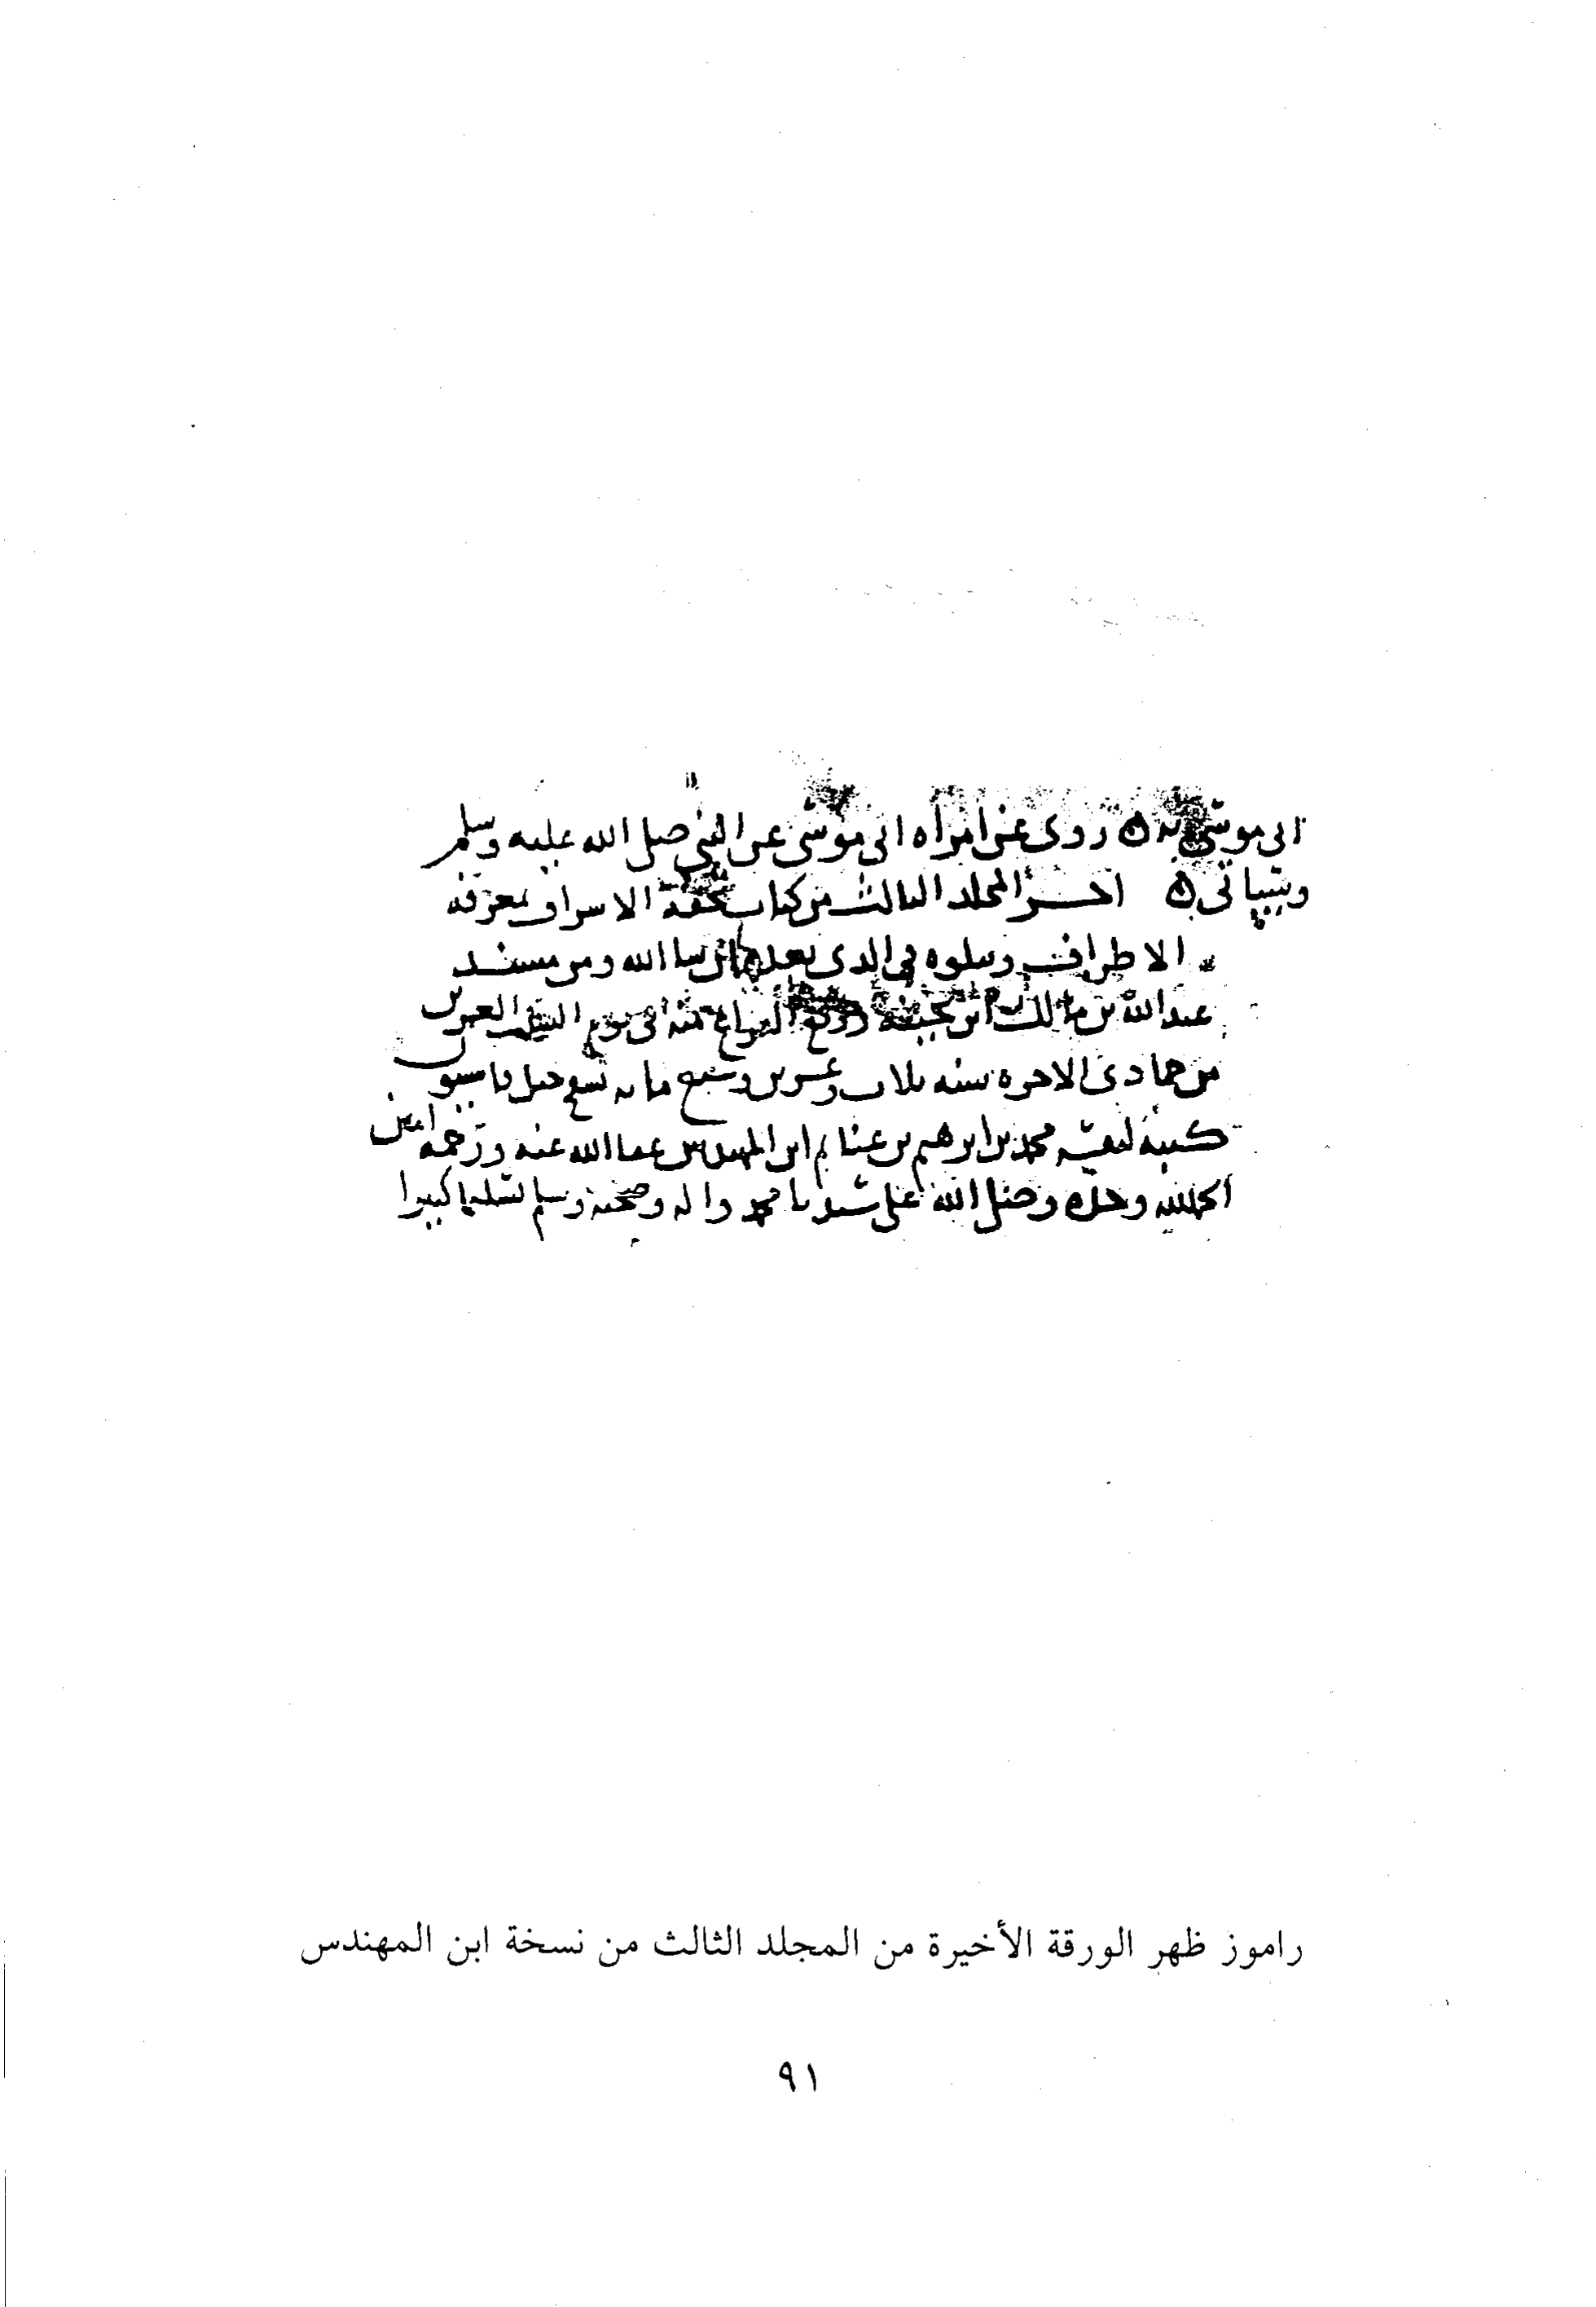 ابى موسى به روى عن امراه ابى موسى عن النبي صلى الله عليه وسلم
وسياتى اخر المجلد الثالث من كتاب تحفة الاشراف بمعرفة
الاطراف ويتلوه فى الذى بعده ان شا الله ومن مسند
عبد الله بن مالك ابن بحينة ووقع الفراغ منه فى يوم العشرين
من جمادى الاخره سنه ثلاث وعشرين وسبع مايه بسفح جبل قاسيون
كتبه لنفسه محمد بن ابرهيم بن غنايم ابن المهندس عفا الله عنه ورحمه امين
الحمد لله وحده وصلى الله على سيدنا محمد واله وصحبه وسلم تسليما كثيرا
راموز ظهر الورقة الأخيرة من المجلد الثالث من نسخة ابن المهندس
٩١